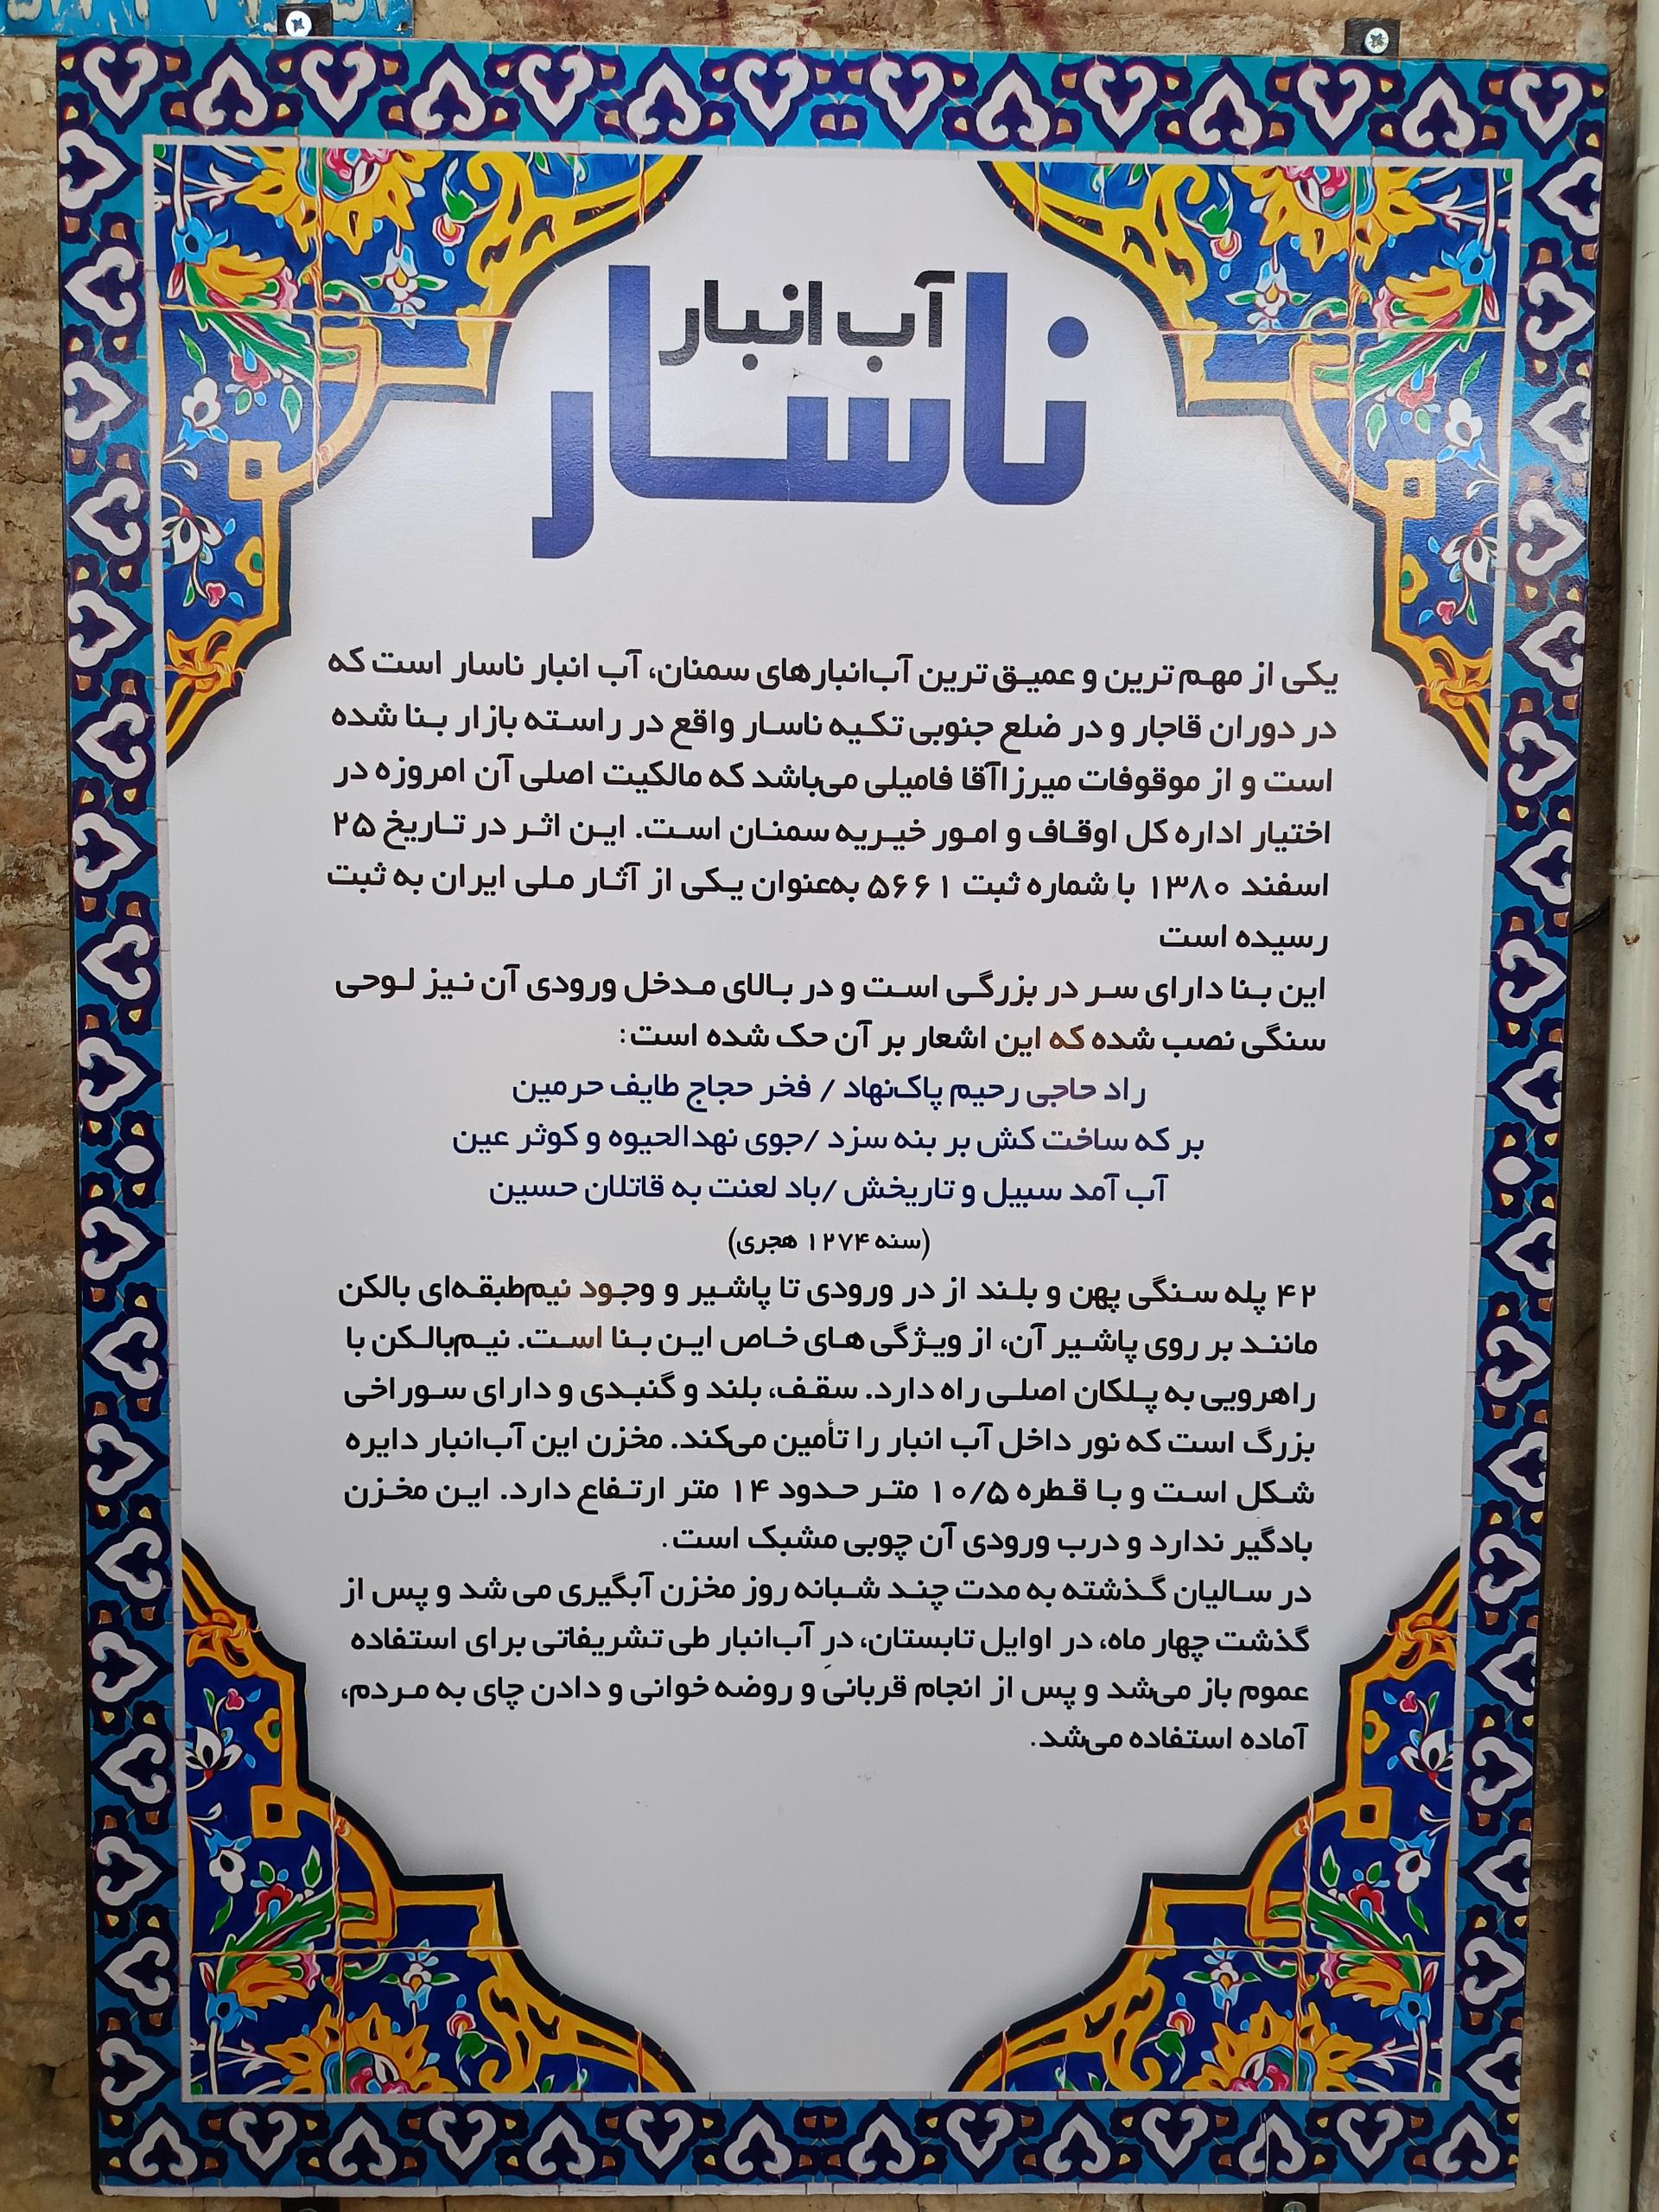 آب انبار
ناسار
یکی از مهم ترین و عمیق ترین آب‌انبارهای سمنان، آب انبار ناسار است که
در دوران قاجار و در ضلع جنوبی تکیه ناسار واقع در راسته بازار بنا شده
است و از موقوفات میرزاآقا فامیلی می‌باشد که مالکیت اصلی آن امروزه در
اختیار اداره کل اوقاف و امور خیریه سمنان است. این اثر در تاریخ ۲۵
اسفند ۱۳۸۰ با شماره ثبت ۵۶۶۱ به‌عنوان یکی از آثار ملی ایران به ثبت
رسیده است
این بنا دارای سر در بزرگی است و در بالای مدخل ورودی آن نیز لوحی
سنگی نصب شده که این اشعار بر آن حک شده است:
راد حاجی رحیم پاک‌نهاد / فخر حجاج طایف حرمین
بر که ساخت کش بر بنه سزد /جوی نهدالحیوه و کوثر عین
آب آمد سبیل و تاریخش /باد لعنت به قاتلان حسین
(سنه ۱۲۷۴ هجری)
۴۲ پله سنگی پهن و بلند از در ورودی تا پاشیر و وجود نیم‌طبقه‌ای بالکن
مانند بر روی پاشیر آن، از ویژگی های خاص این بنا است. نیم‌بالکن با
راهرویی به پلکان اصلی راه دارد. سقف، بلند و گنبدی و دارای سوراخی
بزرگ است که نور داخل آب انبار را تأمین می‌کند. مخزن این آب‌انبار دایره
شکل است و با قطره ۱۰/۵ متر حدود ۱۴ متر ارتفاع دارد. این مخزن
بادگیر ندارد و درب ورودی آن چوبی مشبک است.
در سالیان گذشته به مدت چند شبانه روز مخزن آبگیری می شد و پس از
گذشت چهار ماه، در اوایل تابستان، درِ آب‌انبار طی تشریفاتی برای استفاده
عموم باز می‌شد و پس از انجام قربانی و روضه خوانی و دادن چای به مردم،
آماده استفاده می‌شد.